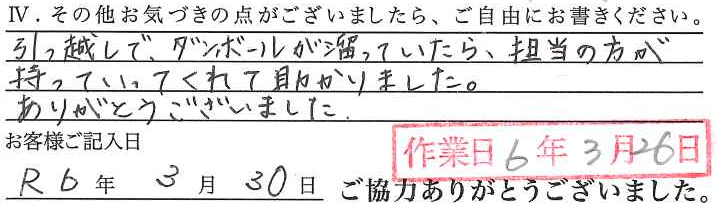 Ⅳ．その他お気づきの点がございましたら、ご自由にお書きください。
引っ越しで、ダンボールが溜っていたら、担当の方が
持っていってくれて助かりました。
ありがとうございました.
お客様ご記入日
作業日 6年 3月26日
R6年 3月 30日 ご協力ありがとうございました。